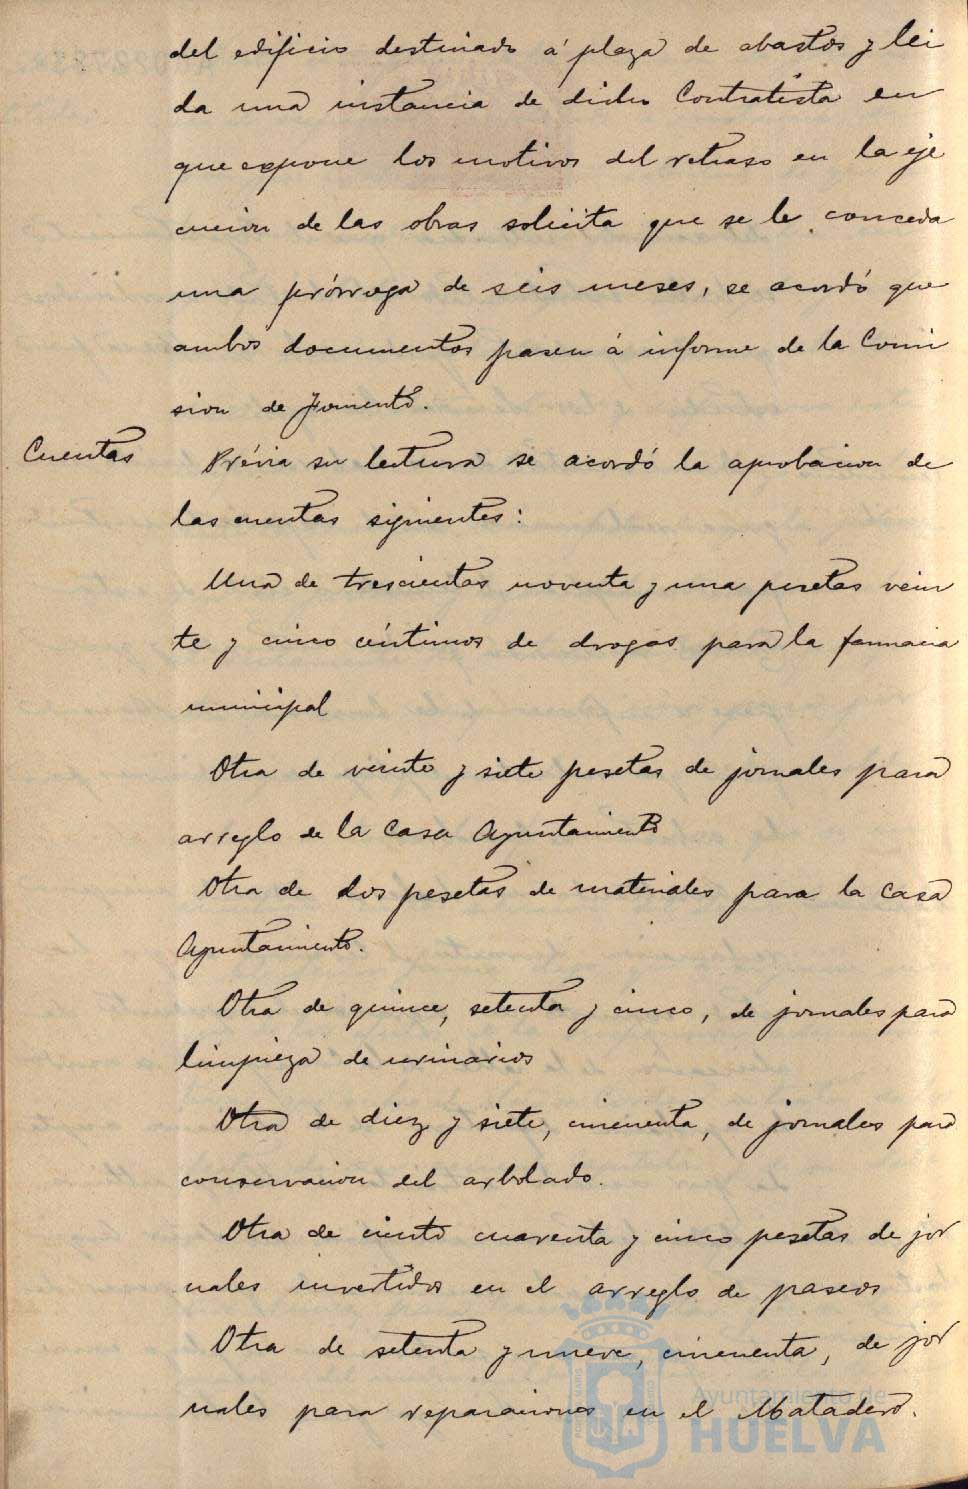 del edificio destinado á plaza de abastos y lei
da una instancia de dicho Contratista en
que expone los motivos del retraso en la eje
cucion de las obras solicita que se le conceda
una prórroga de seis meses, se acordó que
ambos documentos pasen á informe de la Comi
sion de Fomento.
Cuentas
Prévia su lectura se acordó la aprobacion de
las cuentas siguientes:
Una de trescientas noventa y una pesetas vein
te y cinco céntimos de drogas para la farmacia
municipal
Otra de veinte y siete pesetas de jornales para
arreglo de la Casa Ayuntamiento
Otra de dos pesetas de materiales para la Casa
Ayuntamiento.
Otra de quince, setenta y cinco, de jornales para
limpieza de urinarios
Otra de diez y siete, cincuenta, de jornales para
conservacion del arbolado.
Otra de ciento cuarenta y cinco pesetas de jor
nales invertidos en el arreglo de paseos
Otra de setenta y nueve, cincuenta, de jor
nales para reparaciones en el Matadero.
Ayuntamiento de
HUELVA